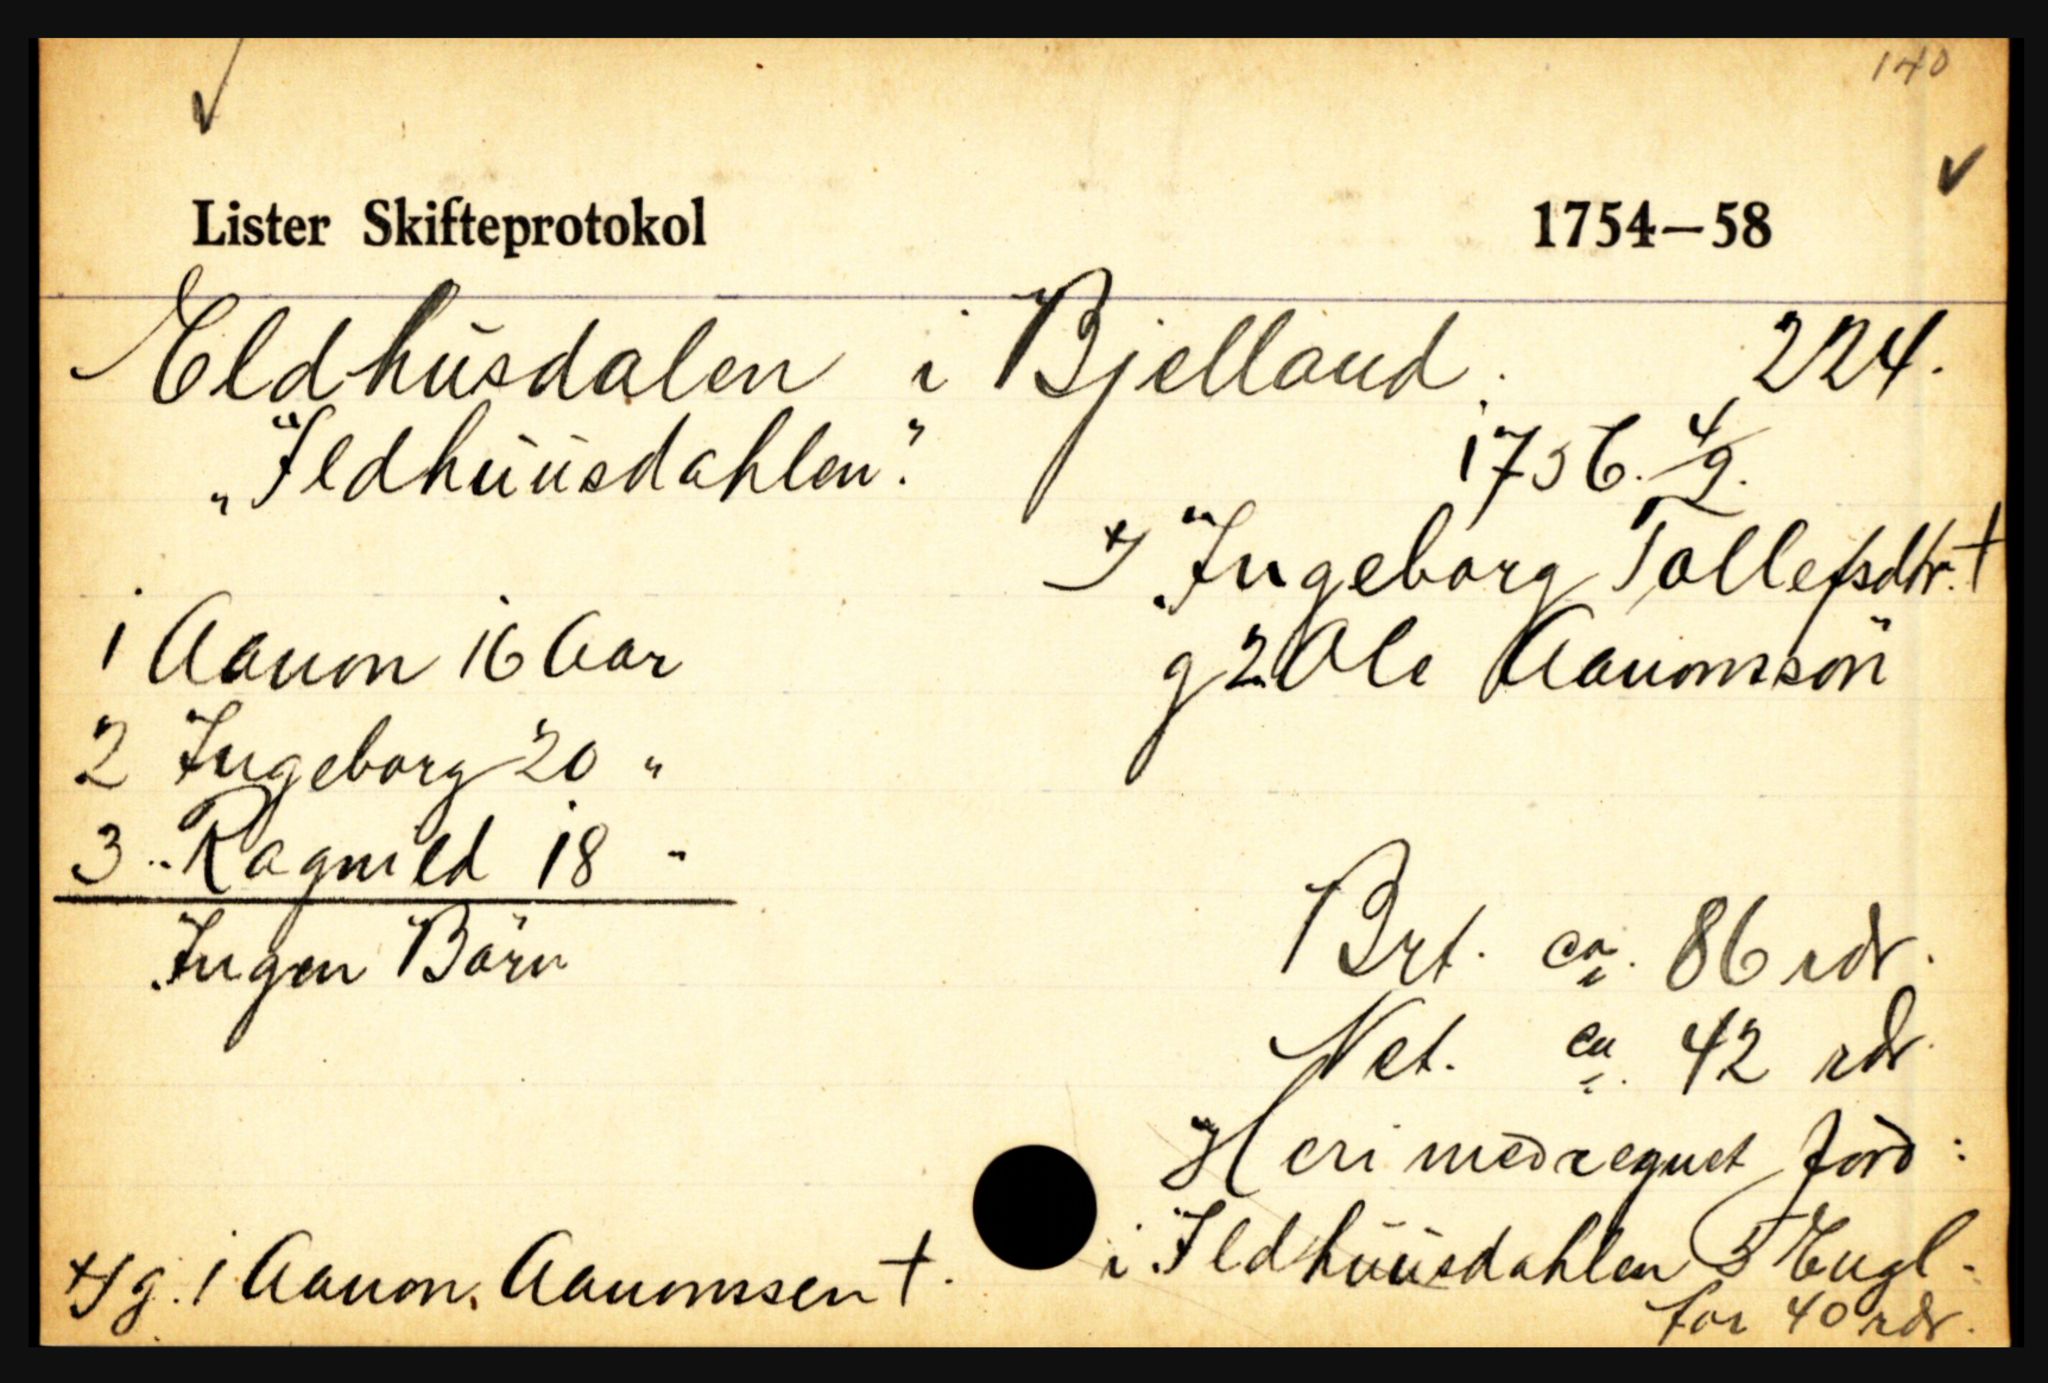 140
Lister Skifteprotokol 1754–58
Eldhusdalen i Bjelland. 224.
"Ildhuusdahlen". 1756. 4/9.
Ingeborg Tollefsdtr. †
1 Aanon 16 Aar g 2 Ole Aanonssön
2 Ingeborg 20 "
3 Ragnild 18 "
Ingen Börn Brt. ca. 86 rdr.
Net. ca. 42 rdr.
Heri medregnet Jord:
i Ildhuusdahlen 3 Engl.
g. 1 Aanon Aanonssen †.
for 40 rdr.